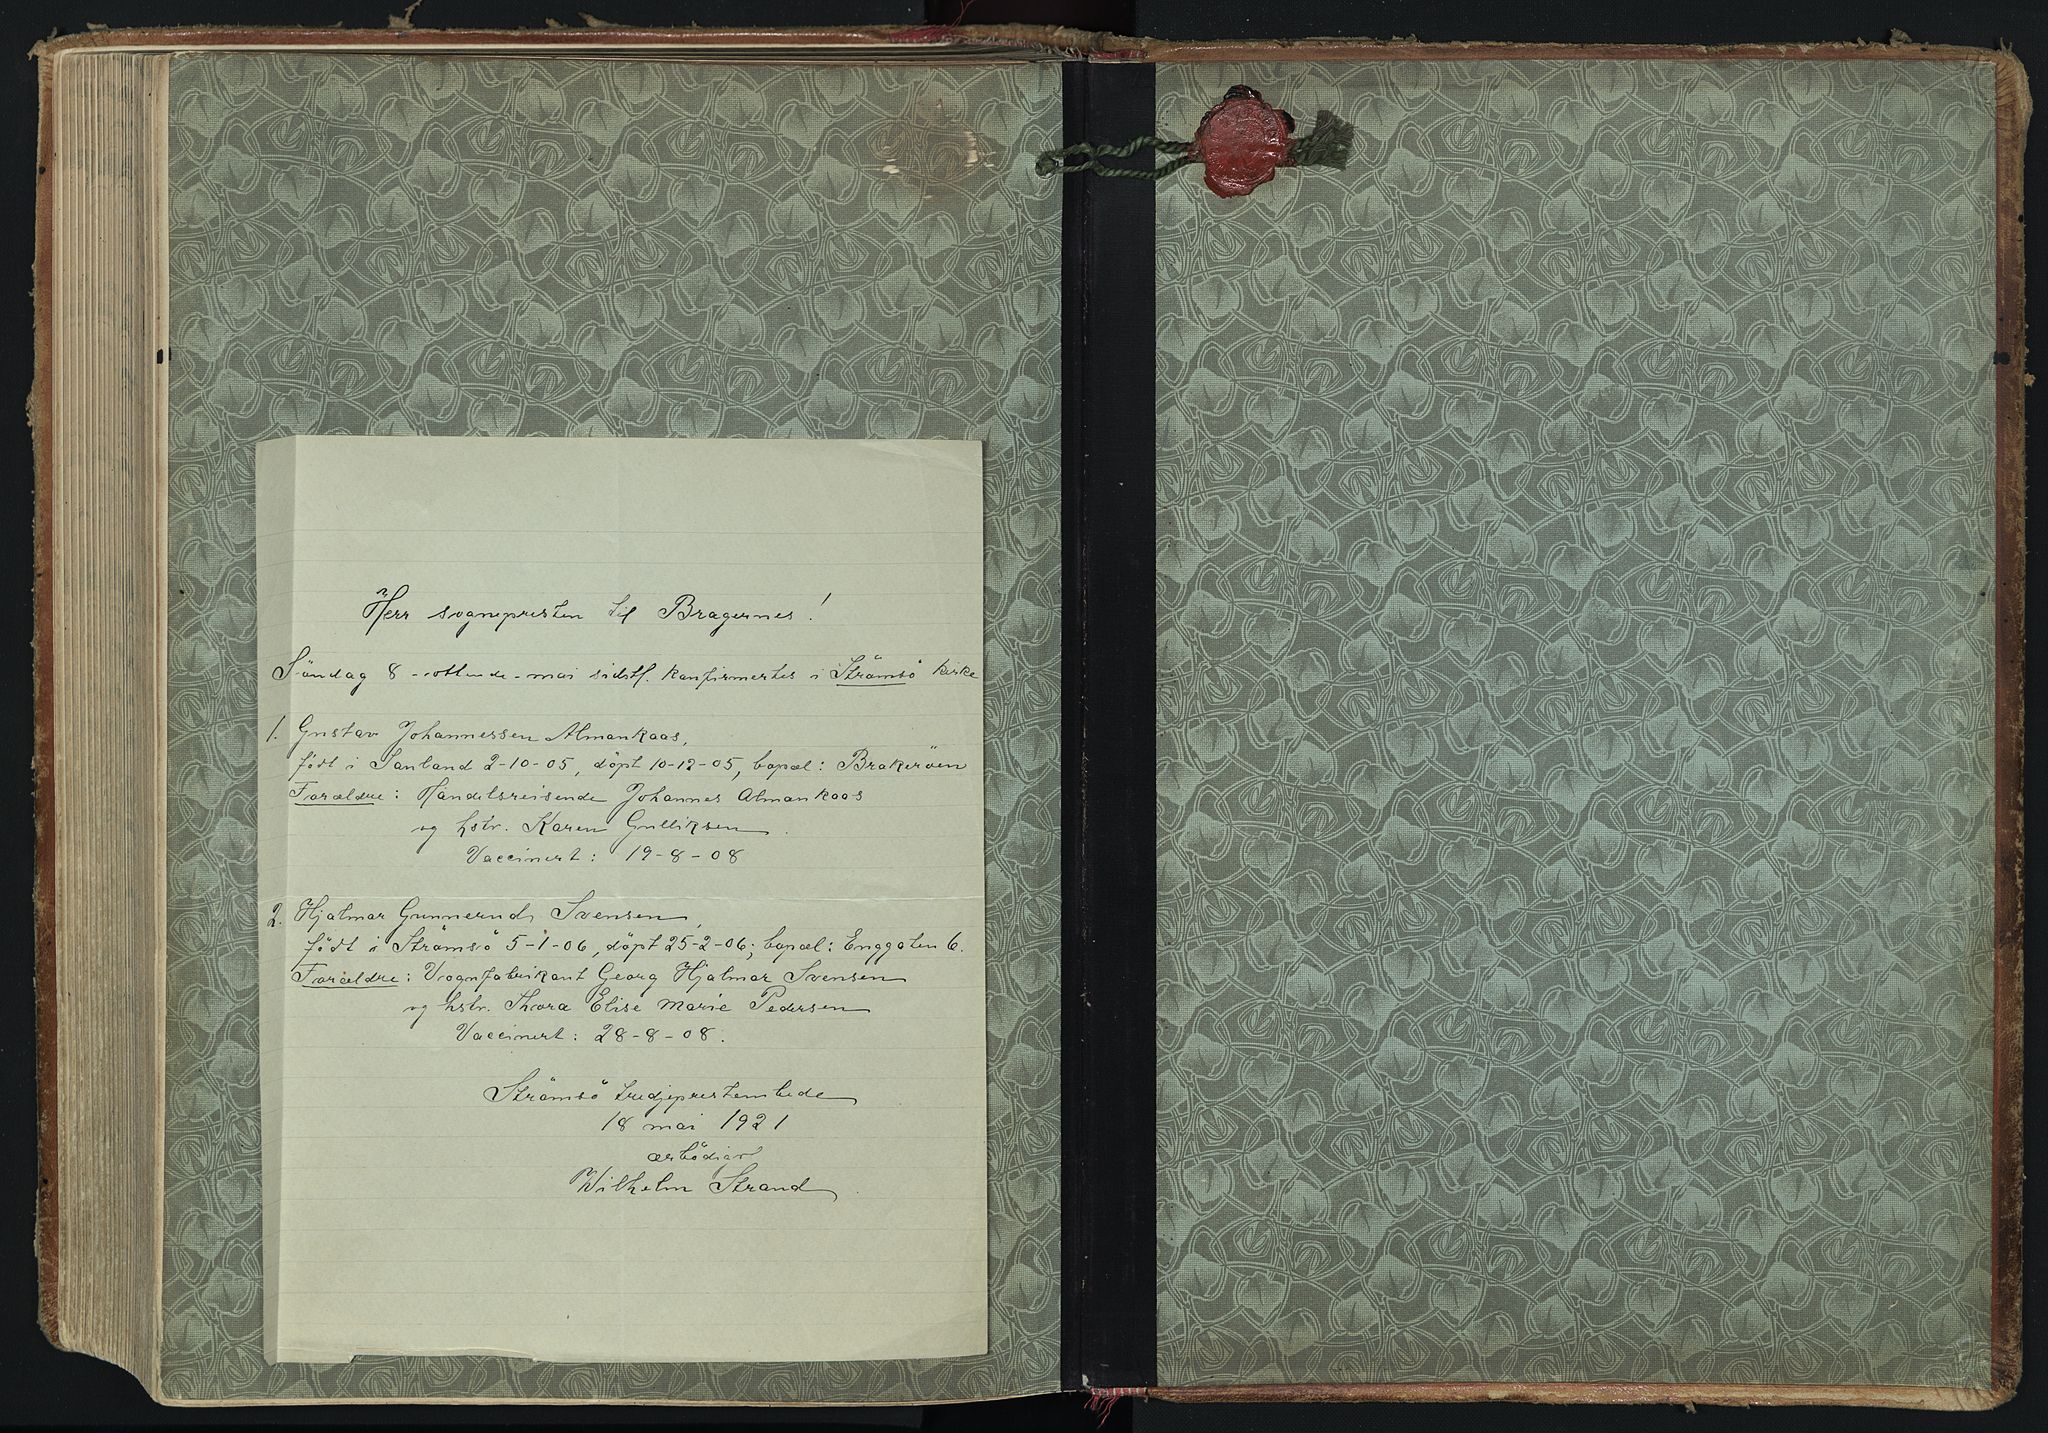 Herr sogneprester til Bragernes!
Söndag 8 - ottende - mai sidstl. konfirmertes i Strömsö kirke
1. Gustav Johannessen Almankaas,
født i Sanland 2-10-05, döpt 10-12-05, bopæl: Brakeröen
Forældre: Handelsreisende Johannes Almankaas
og hstr. Karen Gulliksen
Vaccinert: 19-8-08
2. Hjalmar Gunnerud Svensen
födt i Strömsö 5-1-06, döpt 25-2-06; bopæl: Enggaten 6.
Forældre: Vognfabrikant Georg Hjalmar Svensen
og hstr. Thora Elise Marie Pedersen
Vaccinert: 28-8-08.
Strömsö tredjeprestembede
18 mai 1921
ærbödigst
Wilhelm Strand